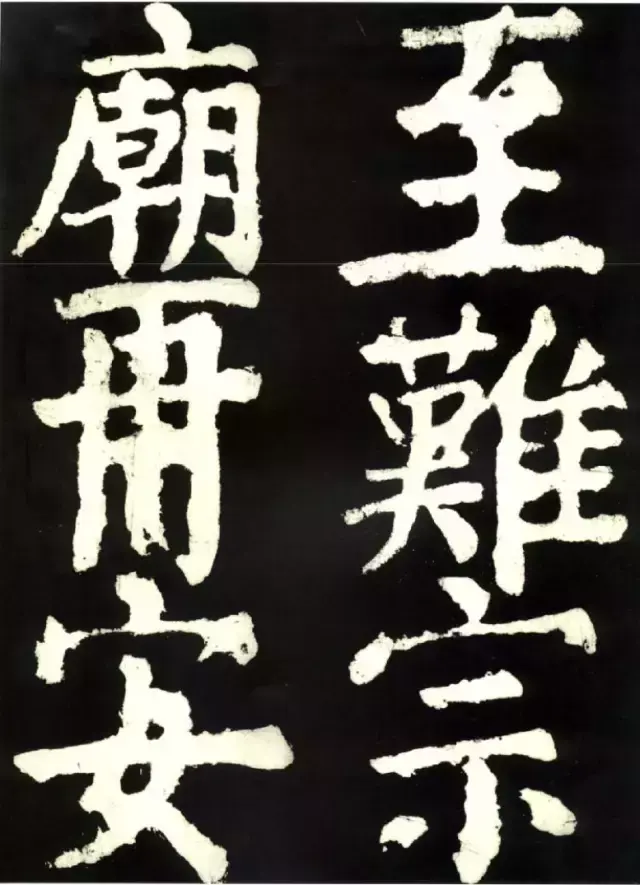 至難宗
廟再安